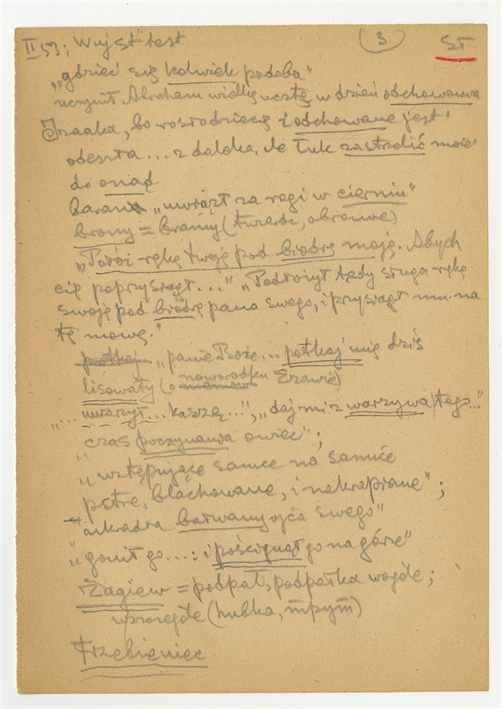 II 53; Wuj St test (3) ST
„gdzieć się kolwiek podoba"
uczynił Abraham wielką ucztę w dzień odchowania
Izaaka, bo rosło dziecię i odchowane jest
odeszła... z daleka, ile łuk zastrzelić może
do onąd
baran „uwiązł za rogi w cierniu"
brony = bramy (twierdz, obronne)
„Połóż rękę twoję pod biodrę moję. Abych
cię poprzysiągł..." „Podłożył tedy sługa rękę
swoję pod biodrę pana swego, i przysiągł mu na
tę mowę."
potkaj „panie Boże... potkaj mię dziś
lisowaty (o noworodku Ezawie)
"... uwarzył... kaszę...", „daj mi z warzywa tego..."
„czas poczynania owiec";
„wstępujące samce na samice
pstre, blachowane, i nakrapiane";
„ukradła bałwany ojca swego"
„gonił go...: i poścignął go na górze"
Żagiew = podpał, podpałka w ogóle;
w szczególe (hubka,
Trzebieniec